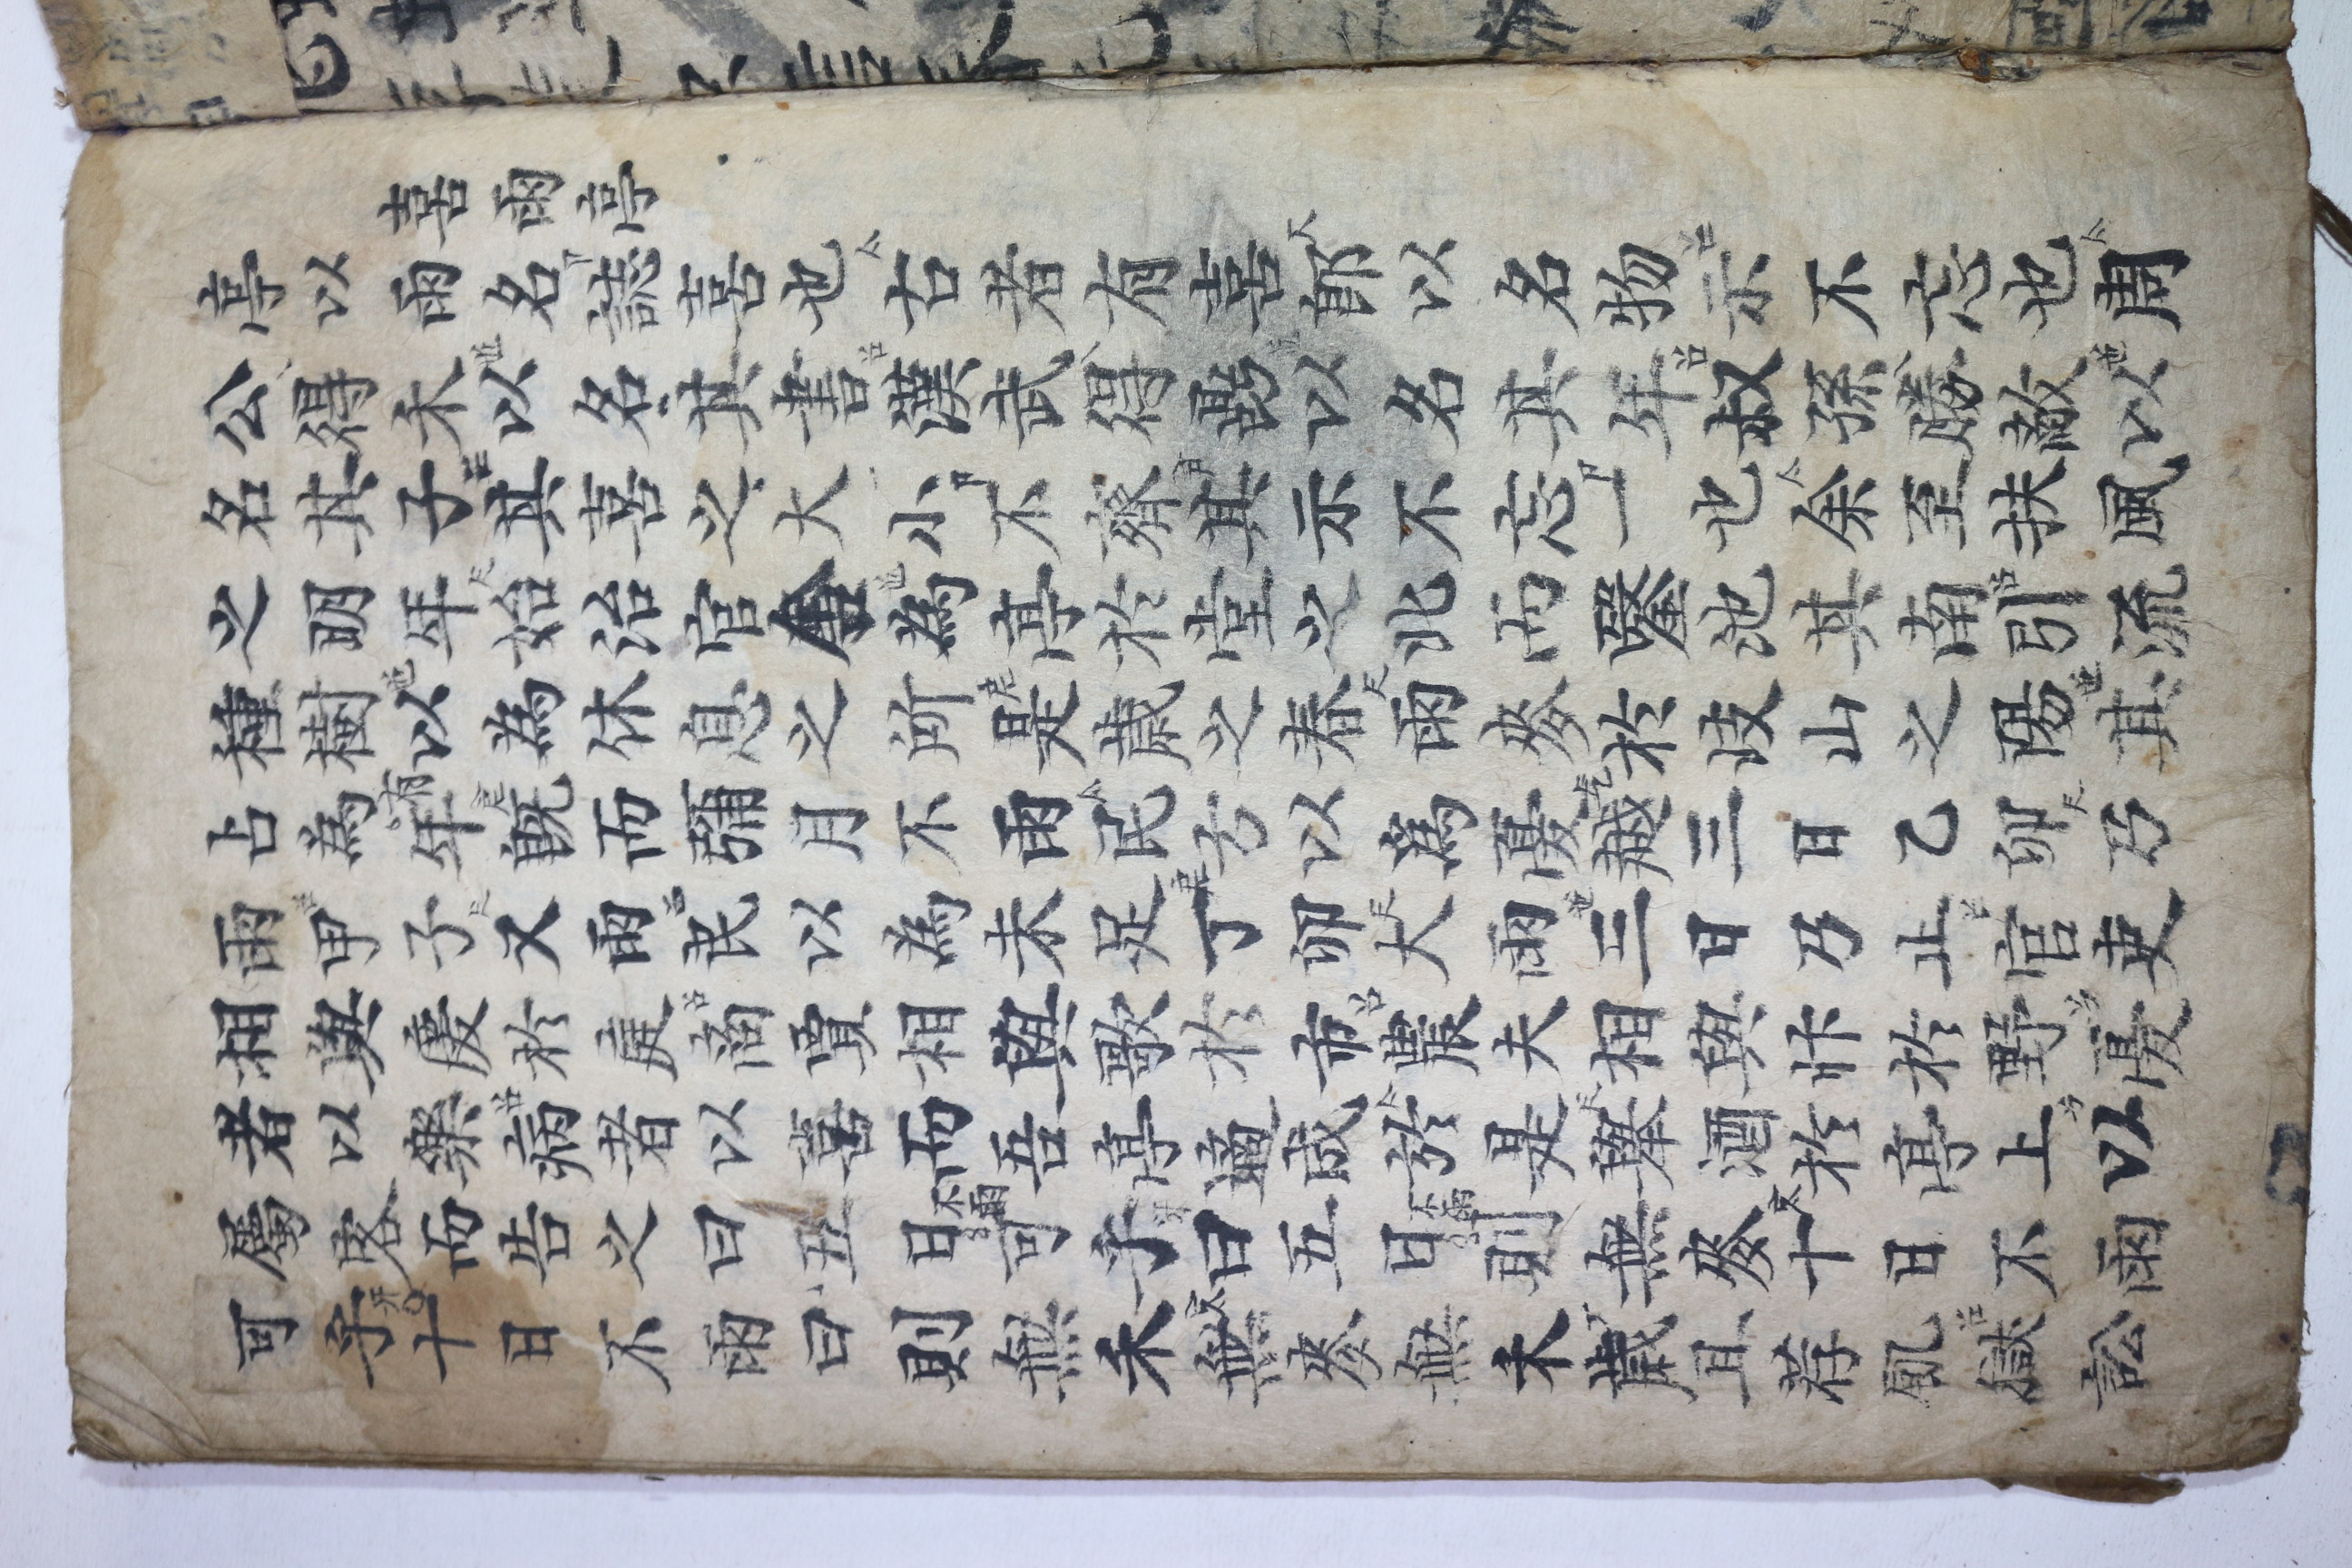 喜雨亭
亭以雨名誌喜也古者有喜郎以名物示不忘也周
公得禾以名其書漢武得鼎以名其年叔孫勝敵以
名其子其喜之大小不齊其示不忘一也余至扶風
之明年始治官舍為亭於堂之北而鑿池其南引流
種樹以為休息之所是歲之春雨麥於岐山之陽其
占為有年旣而彌月不雨民方以為憂越三日乙卯乃
雨甲子又雨民以為未足丁卯大雨三日乃止官吏
相與慶於庭商賈相與歌於市農夫相與忭於野憂
者以樂病者以喜而吾亭適成於是舉酒於亭上以
屬客而告之曰五日不雨可乎曰五日不雨則無麥十日不雨
可乎十日不雨曰則無禾無麥無禾歲且荐飢獄訟